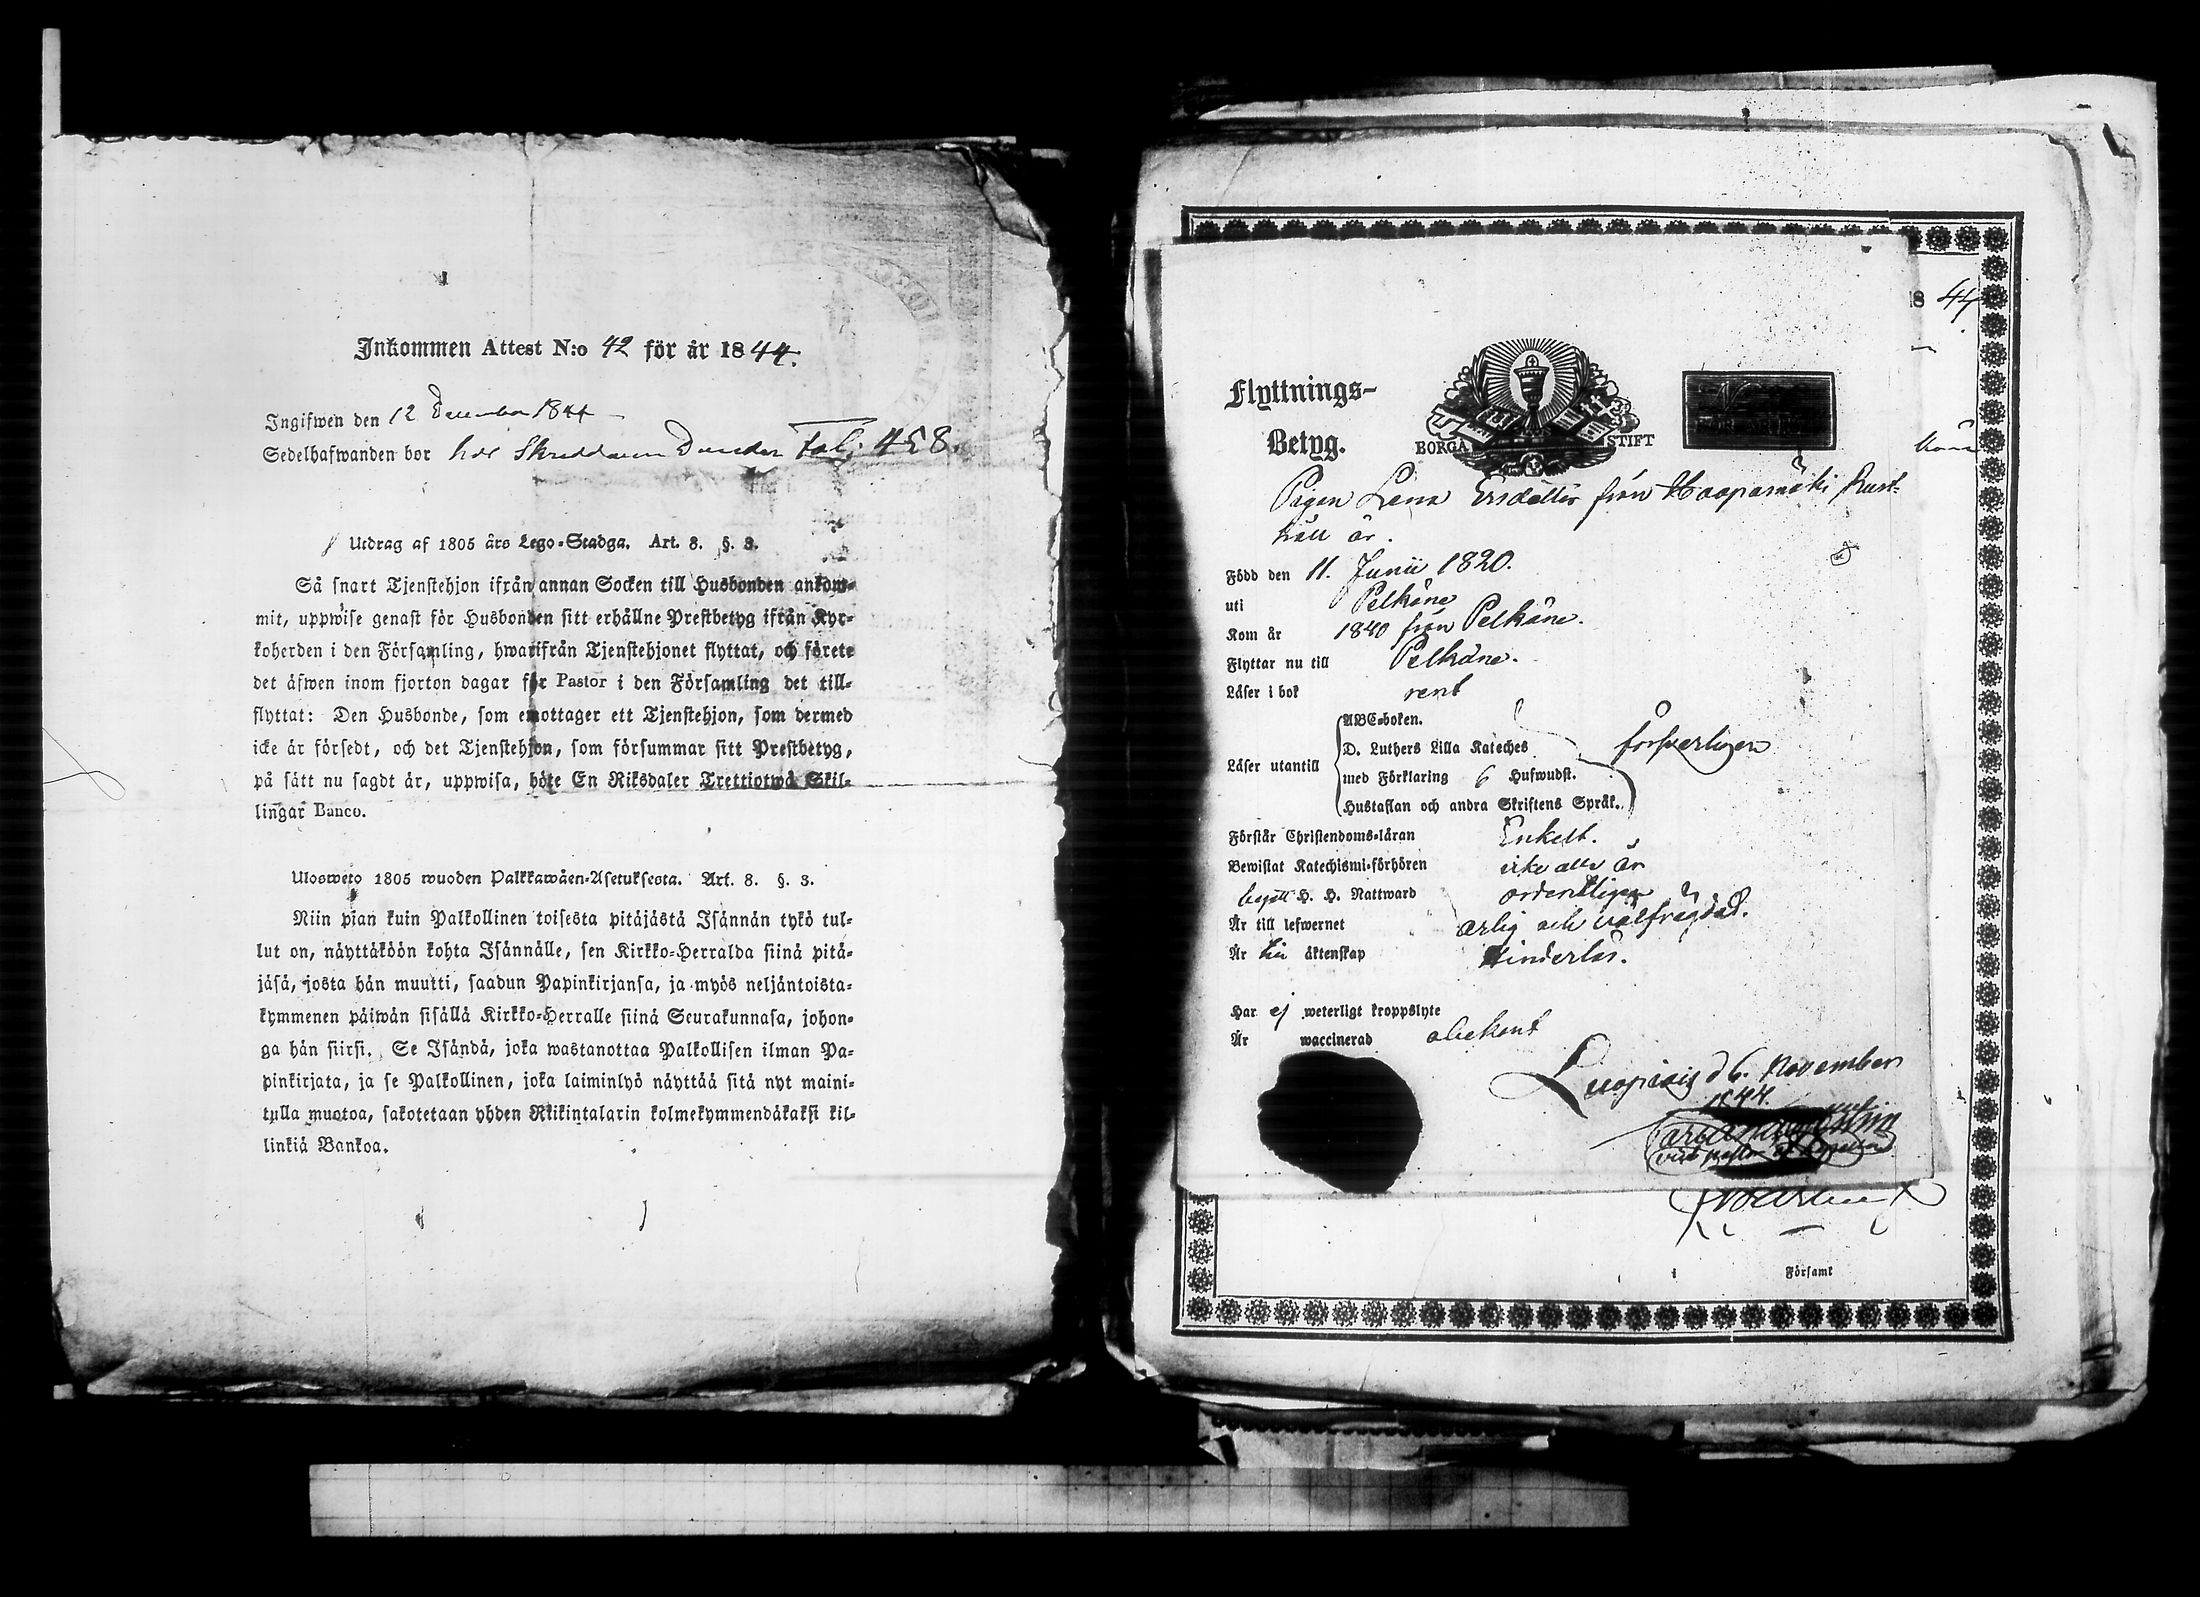 Inkommen Attest N:o 42 för år 1844.
Ingifwen den 12 December 1844
Sedelhafwanden bor hos Skreddaren Dunder Fol: 458.
Utdrag af 1805 års Lego-Stadga. Art. 8. §. 3.
Så snart Tjenstehjon ifrån annan Socken till Husbonden ankom-
mit, uppwise genast för Husbonden sitt erhållne Prestbetyg ifrån Kyr-
koherden i den Församling, hwarifrån Tjenstehjonet flyttat, och förete
det äfwen inom fjorton dagar för Pastor i den Församling det till-
flyttat: Den Husbonde, som emottager ett Tjenstehjon, som dermed
icke är försedt, och det Tjenstehjon, som försummar sitt Prestbetyg,
på sätt nu sagdt är, uppwisa, böte En Riksdaler Trettiotwå Skil-
lingar Banco.
Ulosweto 1805 wuoden Palkkawäen-Asetuksesta. Art. 8. §. 3.
Niin pian kuin Palkollinen toisesta pitäjästä Isännän tykö tul-
lut on, näyttäköön kohta Isännälle, sen Kirkko-Herralda siinä pitä-
jäsä, josta hän muutti, saadun Papinkirjansa, ja myös neljäntoista-
kymmenen päiwän sisällä Kirkko-Herralle siinä Seurakunnasa, johon-
ga hän siirsi. Se Isändä, joka wastanottaa Palkollisen ilman Pa-
pinkirjata, ja se Palkollinen, joka laiminlyö näyttää sitä nyt maini-
tulla muotoa, sakotetaan yhden Rikintalarin kolmekymmendäkaksi kil-
linkiä Bankoa.
8 44
Flyttnings-
Betyg.
BORGÅ STIFT
Pigan Lena Ersdotter från Haapamäki Rust-
håll är.
Född den 11. Junii 1820.
uti Pelkäne
Kom år 1840 från Pelkäne.
Flyttar nu till Pelkäne.
Läser i bok rent
Läser utantill
ABC-boken.
D. Luthers Lilla Kateches
med Förklaring 6 Hufwudst.
Hustaflan och andra Skriftens Språk.
försvarligen
Förstår Christendoms-läran Enkelt.
Bewistat Katechismi-förhören icke alla år
begått H. H. Nattward ordentligen
Är till lefwernet ärlig och välfrägdad.
Är till äktenskap hinderlös.
Har ej weterligt kroppslyte
Är waccinerad obekant
Luopiais d 6. November
1844.
i Församl